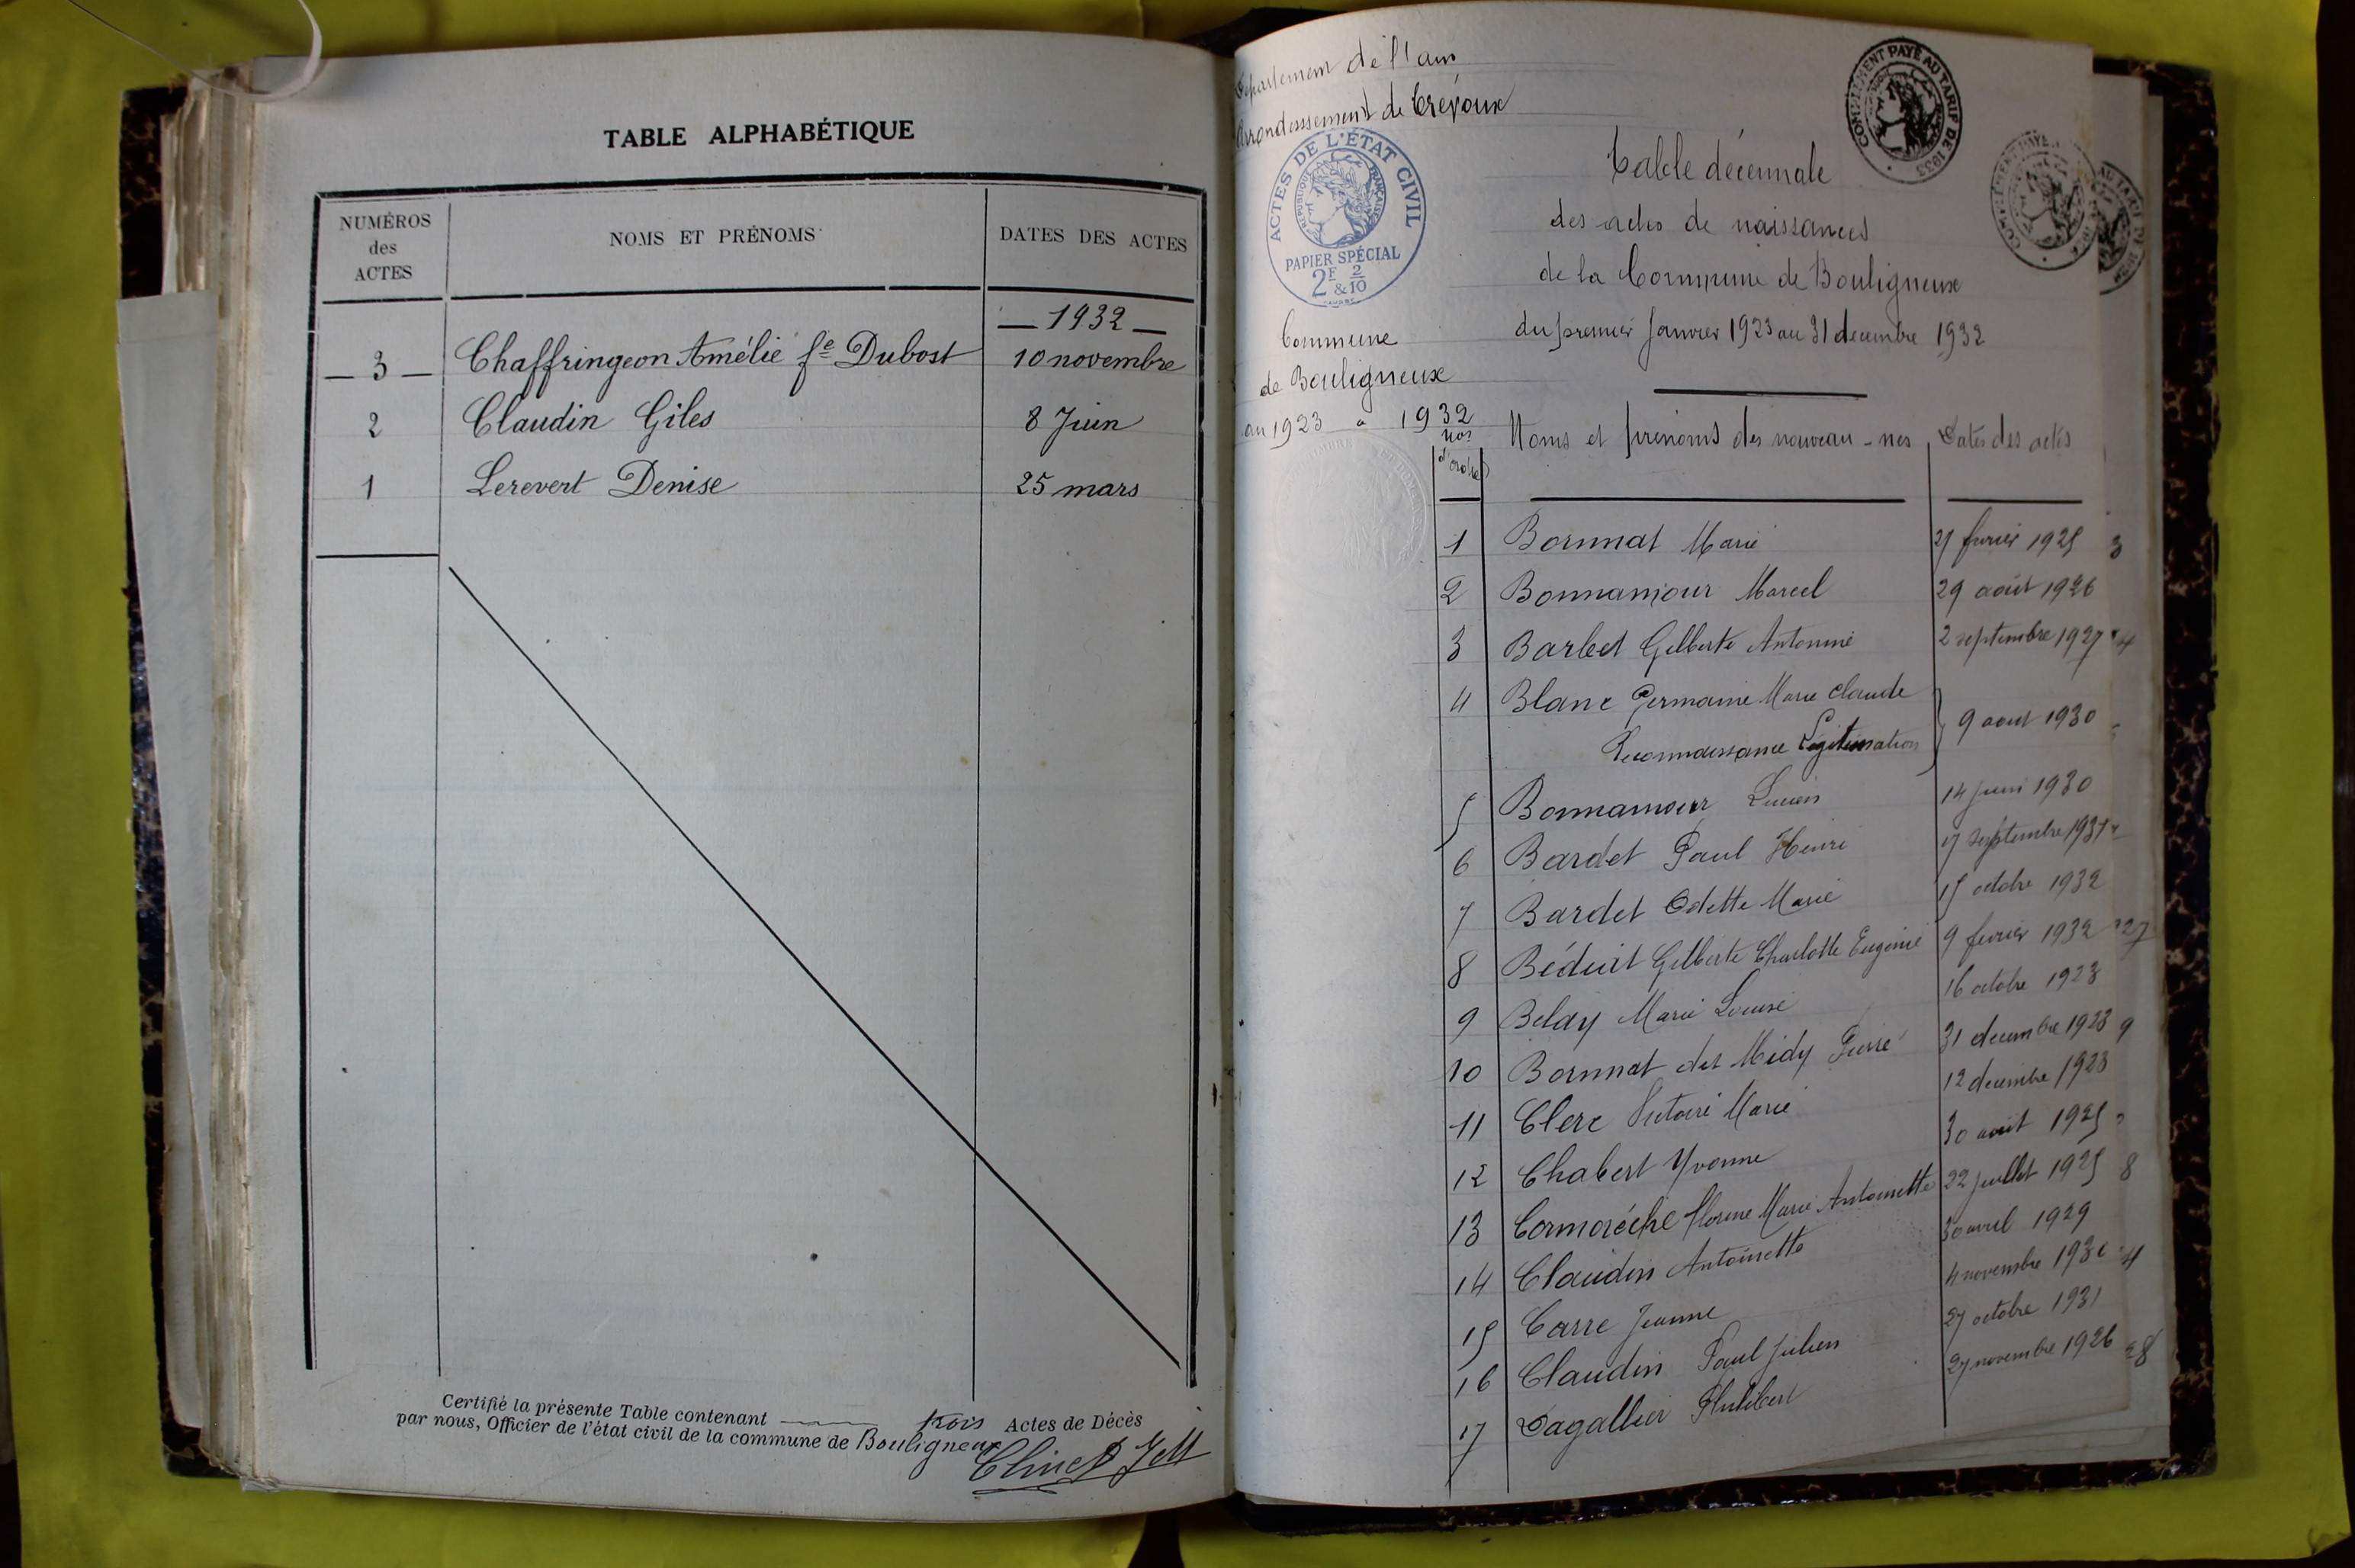 TABLE ALPHABÉTIQUE
NUMÉROS des ACTES
NOMS ET PRÉNOMS
DATES DES ACTES
— 1932 —
— 3 — Chaffringeon Amélie fe Dubost 10 novembre
2 Claudin Giles 8 Juin
1 Lerevert Denise 25 mars
Certifié la présente Table contenant trois Actes de Décès
par nous, Officier de l'état civil de la commune de Bouligneux
Département de l'ain
Arrondissement de Trévoux
ACTES DE L'ÉTAT CIVIL
RÉPUBLIQUE FRANÇAISE
PAPIER SPÉCIAL
2F & 2/10
COMPLÉMENT PAYÉ AU TARIF DE 1933
Table décennale
des actes de naissances
de la Commune de Bouligneux
du premier Janvier 1923 au 31 decembre 1932
Commune
de Bouligneux
an 1923 a 1932
Nos d'ordre
Noms et prénoms des nouveau-nés
Dates des actes
1 Bornnat Marie 27 fevrier 1925 3
2 Bonnamour Marcel 29 août 1926
3 Barbet Gilberte Antonine 2 septembre 1927 4
4 Blanc Germaine Marie Claude
Reconnaissance Légitimation 9 aout 1930
5 Bonnamour Lucien 14 juin 1930
6 Bardet Paul Henri 17 septembre 1931
7 Bardet Odette Marie 15 octobre 1932
8 Béduit Gilberte Charlotte Eugenie 9 fevrier 1932 27
9 Belay Marie Louise 16 octobre 1923
10 Bornnat dit Midy Pierre 31 decembre 1923 9
11 Clerc Victoire Marie 12 decembre 1923
12 Chabert Yvonne 30 août 1925
13 Cormorèche Florine Marie Antoinette 22 juillet 1925 8
14 Claudin Antoinette 30 avril 1929
15 Carre Jeanne 4 novembre 1930 4
16 Claudin Paul Julien 27 octobre 1931
17 Dagallier Philibert 27 novembre 1926 28